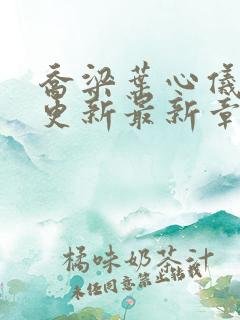 乔梁葉心儀
更新最新章
橘味奶茶汁
未经同意禁止转载